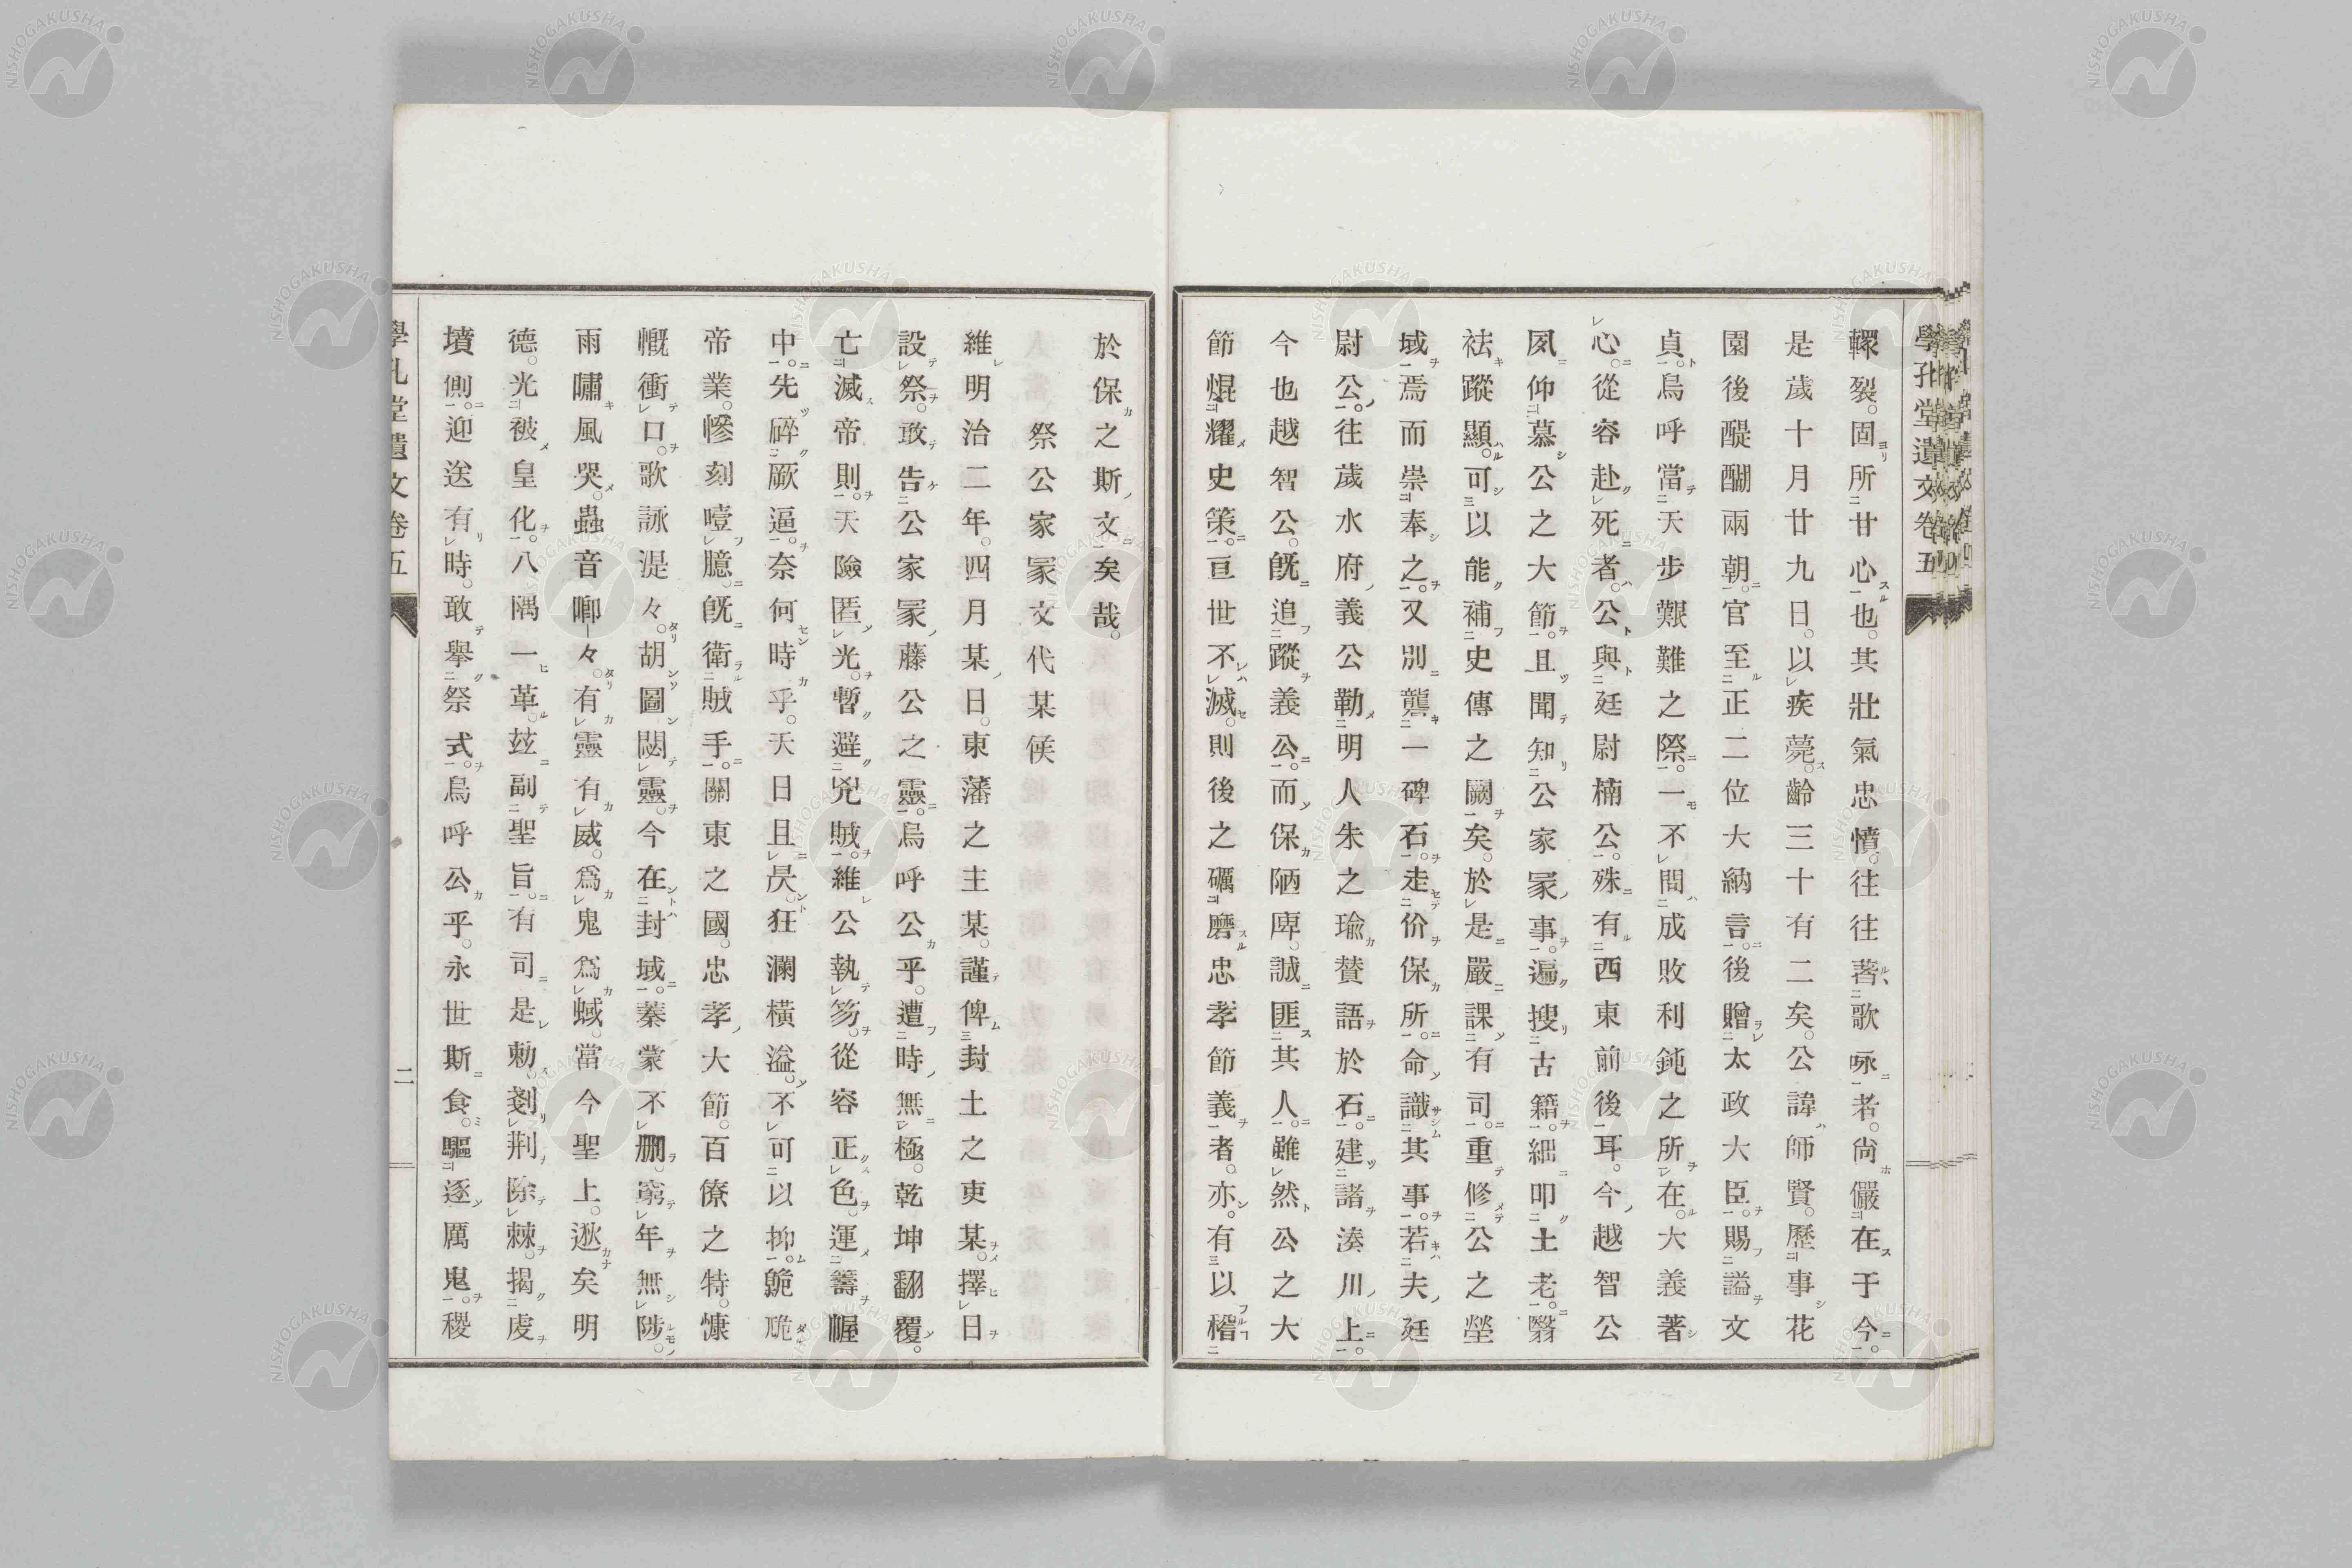 學孔堂遺文卷五
轘裂。固所甘心也。其壯氣忠憤。往往著歌咏者。尙儼在于今。
是歲十月廿九日。以疾薨。齡三十有二矣。公諱師賢。歷事花
園後醍醐兩朝。官至正二位大納言。後贈太政大臣。賜謚文
貞。烏呼當天步艱難之際。一不問成敗利鈍之所在。大義著
心。從容赴死者。公與廷尉楠公。殊有西東前後耳。今越智公
夙仰慕公之大節。且聞知公家冢事。遍搜古籍。細叩土老。翳
祛蹤顯。可以能補史傳之闕矣。於是嚴課有司。重修公之塋
域焉而崇奉之。又別蘢一碑石。走价保所。命識其事。若夫廷
尉公。往歲水府義公勒明人朱之瑜賛語於石。建諸湊川上。
今也越智公。既追蹤義公。而保陋庳。誠匪其人。雖然公之大
節焜耀史策。亘世不滅。則後之礪磨忠孝節義者。亦有以稽
於保之斯文矣哉。
祭公家冢文代某候
維明治二年。四月某日。東藩之主某。謹俾封土之吏某。擇日
設祭。敢告公家冢藤公之靈。烏呼公乎。遭時無極。乾坤翻覆。
亡滅帝則。天險匿光。暫避兇賊。維公執笏。從容正色。運籌幄
中。先碎厥逼。奈何時乎。天日且昃。狂瀾橫溢。不可以抑。臲卼
帝業。慘刻噎臆。既衛賊手。關東之國。忠孝大節。百僚之特。慷
慨衝口。歌詠湜々。胡圖閟靈。今在封域。蓁蒙不刪。窮年無陟。
雨嘯風哭。蟲音喞々。有靈有威。爲鬼爲蜮。當今聖上。逖矣明
德。光被皇化。八隅一革。玆副聖旨。有司是勅。剗荆除棘。揭虔
墳側。迎送有時。敢擧祭式。烏呼公乎。永世斯食。驅逐厲鬼。稷
學孔堂遺文卷五
二